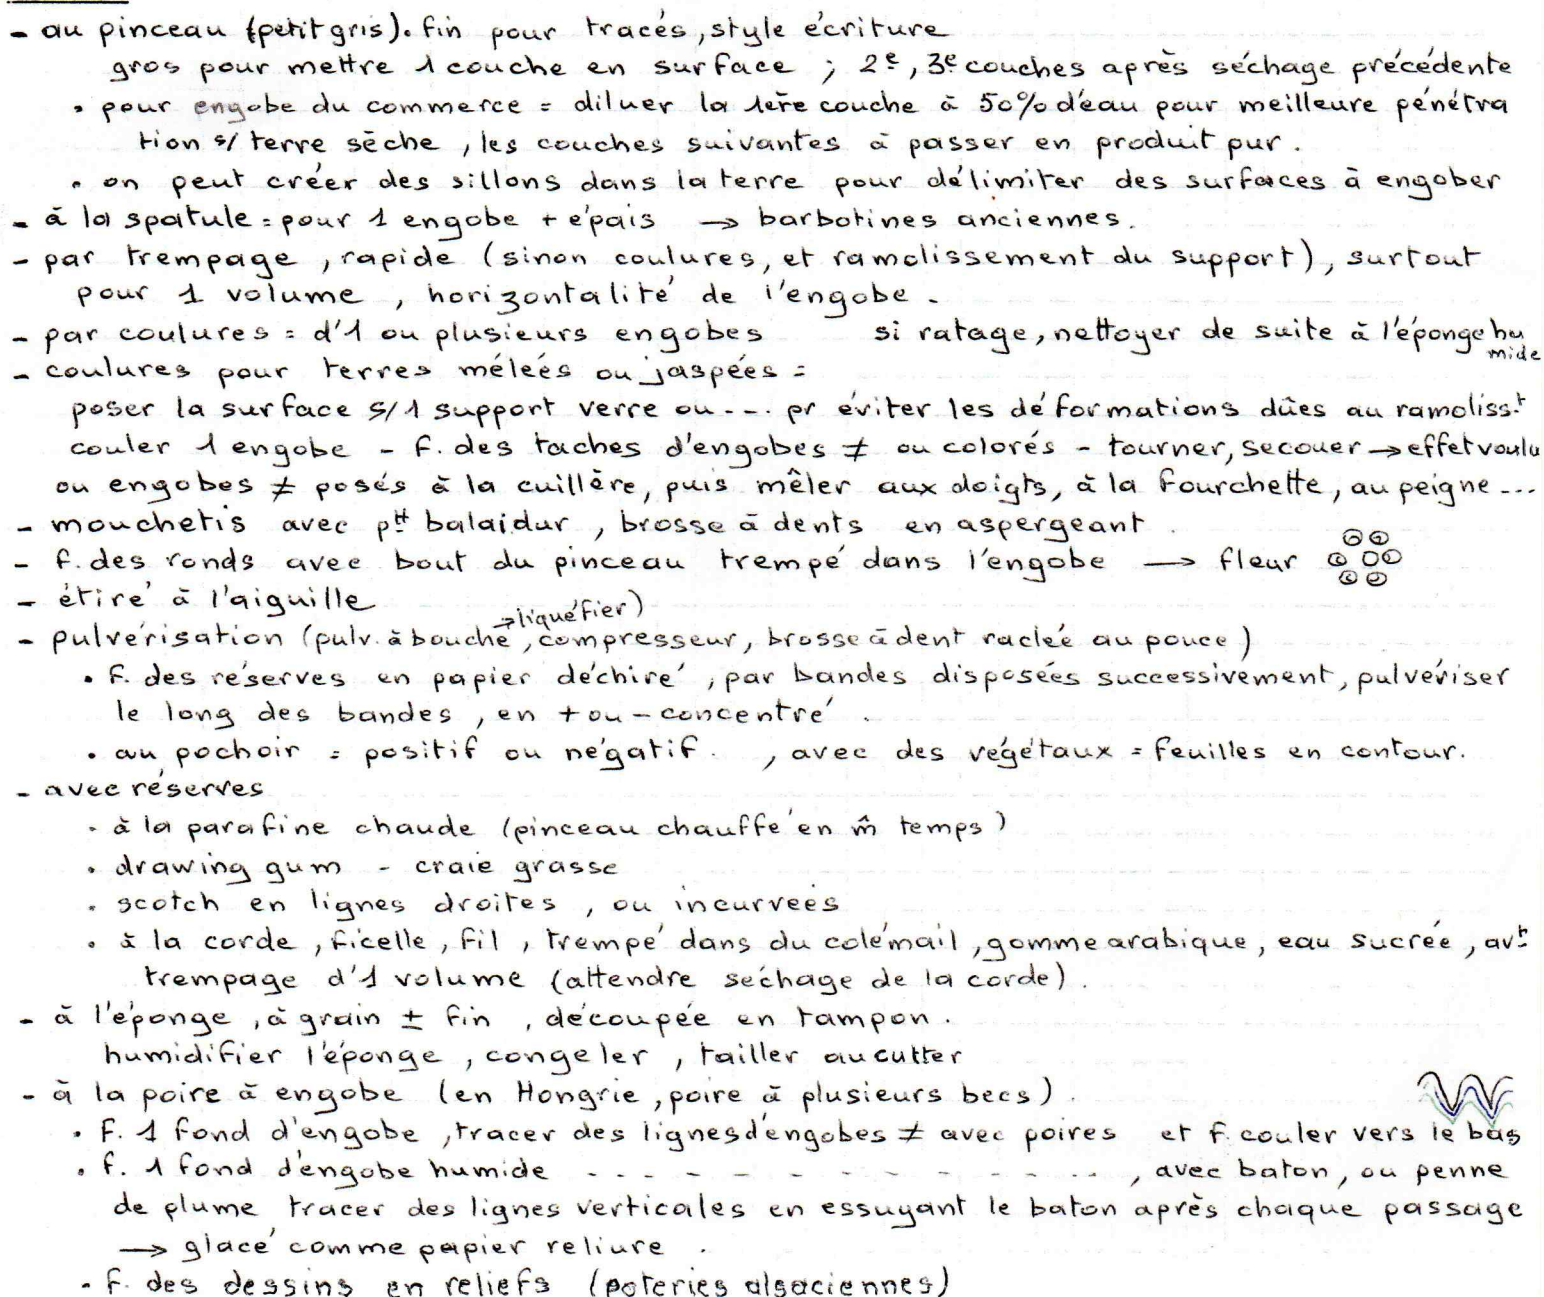 - au pinceau (petit gris). fin pour tracés, style écriture
gros pour mettre 1 couche en surface ; 2e, 3e couches après séchage précédente
. pour engobe du commerce = diluer la 1ère couche à 50% d'eau pour meilleure pénétra
tion s/ terre sèche, les couches suivantes à passer en produit pur.
. on peut créer des sillons dans la terre pour délimiter des surfaces à engober
- à la spatule = pour 1 engobe + épais → barbotines anciennes.
- par trempage, rapide (sinon coulures, et ramolissement du support), surtout
pour 1 volume, horizontalité de l'engobe.
- par coulures = d'1 ou plusieurs engobes si ratage, nettoyer de suite à l'éponge hu
mide
- coulures pour terres mélées ou jaspées =
poser la surface s/ 1 support verre ou --- pr éviter les déformations dûes au ramoliss.t
couler 1 engobe - f. des taches d'engobes ≠ ou colorés - tourner, secouer → effet voulu
ou engobes ≠ posés à la cuillère, puis mêler aux doigts, à la fourchette, au peigne ...
- mouchetis avec ptt balaidur, brosse à dents en aspergeant.
- f. des ronds avec bout du pinceau trempé dans l'engobe → fleur
- étiré à l'aiguille
→ liquéfier)
- pulvérisation (pulv. à bouche, compresseur, brosse à dent raclée au pouce)
. f. des réserves en papier déchiré, par bandes disposées successivement, pulvériser
le long des bandes, en + ou - concentré.
. au pochoir = positif ou négatif. , avec des végétaux = feuilles en contour.
- avec réserves
. à la parafine chaude (pinceau chauffé en m̂ temps)
. drawing gum - craie grasse
. scotch en lignes droites, ou incurvées
. à la corde, ficelle, fil, trempé dans du colémail, gomme arabique, eau sucrée, avt
trempage d'1 volume (attendre séchage de la corde).
- à l'éponge, à grain ± fin, découpée en tampon.
humidifier l'éponge, congeler, tailler au cutter
- à la poire à engobe (en Hongrie, poire à plusieurs becs).
. f. 1 fond d'engobe, tracer des lignes d'engobes ≠ avec poires et f. couler vers le bas
. f. 1 fond d'engobe humide - - - - - - - - - - - -, avec baton, ou penne
de plume tracer des lignes verticales en essuyant le baton après chaque passage
→ glacé comme papier reliure.
- f. des dessins en reliefs (poteries alsaciennes)